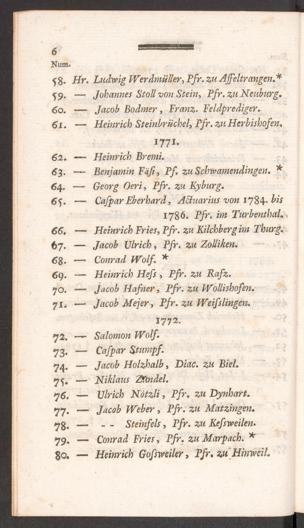 6
Num.
58. Hr. Ludwig Werdmüller, Pfr. zu Affeltrangen. *
59. — Johannes Stoll von Stein, Pfr. zu Neuburg.
60. — Jacob Bodmer, Franz. Feldprediger.
61. — Heinrich Steinbrüchel, Pfr. zu Herbishofen.
1771.
62. — Heinrich Bremi.
63. — Benjamin Fäsi, Pf. zu Schwamendingen. *
64. — Georg Oeri, Pfr. zu Kyburg.
65. — Caspar Eberhard, Actuarius von 1784. bis
1786. Pfr. im Turbenthal.
66. — Heinrich Fries, Pfr. zu Kilchberg im Thurg.
67. — Jacob Ulrich, Pfr. zu Zolliken.
68. — Conrad Wolf. *
69. — Heinrich Hess, Pfr. zu Rafz.
70. — Jacob Hafner, Pfr. zu Wollishofen.
71. — Jacob Mejer, Pfr. zu Weisslingen.
1772.
72. — Salomon Wolf.
73. — Caspar Stumpf.
74. — Jacob Holzhalb, Diac. zu Biel.
75. — Niklaus
76. — Ulrich Nötzli, Pfr. zu Dynhart.
77. — Jacob Weber, Pfr. zu Matzingen.
78. — - - Steinfels, Pfr. zu Kessweilen.
79. — Conrad Fries, Pfr. zu Marpach. *
80. — Heinrich Gossweiler, Pfr. zu Hinweil.